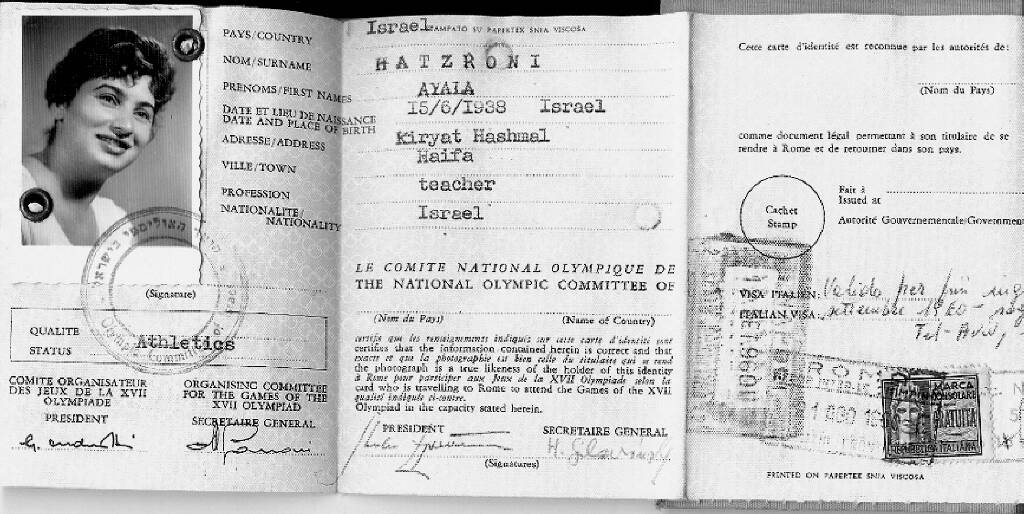 PAYS/COUNTRY
NOM/SURNAME
PRENOMS/FIRST NAMES
DATE ET LIEU DE NAISSANCE
DATE AND PLACE OF BIRTH
ADRESSE/ADDRESS
VILLE/TOWN
PROFESSION
NATIONALITE/
NATIONALITY
(Signature)
QUALITE
STATUS
Athletics
COMITE ORGANISATEUR
DES JEUX DE LA XVII
OLYMPIADE
PRESIDENT
ORGANISING COMMITTEE
FOR THE GAMES OF THE
XVII OLYMPIAD
SECRETAIRE GENERAL
Israel
STAMPATO SU PAPERTEX SNIA VISCOSA
HATZRONI
AYALA
15/6/1938 Israel
Kiryat Hashmal
Haifa
teacher
Israel
LE COMITE NATIONAL OLYMPIQUE DE
THE NATIONAL OLYMPIC COMMITTEE OF
(Nom du Pays) (Name of Country)
certifie que les renseignements indiqués sur cette carte d'identité sont
certifies that the information contained herein is correct and that
exacts et que la photographie est bien celle du titulaire qui se rend
the photograph is a true likeness of the holder of this identity
à Rome pour participer aux Jeux de la XVII Olympiade selon la
card who is travelling to Rome to attend the Games of the XVII
qualité indiquée ci-contre.
Olympiad in the capacity stated herein.
PRESIDENT SECRETAIRE GENERAL
(Signatures)
Cette carte d'identité est reconnue par les autorités de:
(Nom du Pays)
comme document légal permettant à son titulaire de se
rendre à Rome et de retourner dans son pays.
Cachet
Stamp
Fait à
Issued at
Autorité Gouvernementale/Government
VISA ITALIEN: Valido per
ITALIAN VISA: settembre 1960
Tel-Aviv,
MARCA
CONSOLARE
GRATUITA
REPUBBLICA ITALIANA
PRINTED ON PAPERTEX SNIA VISCOSA